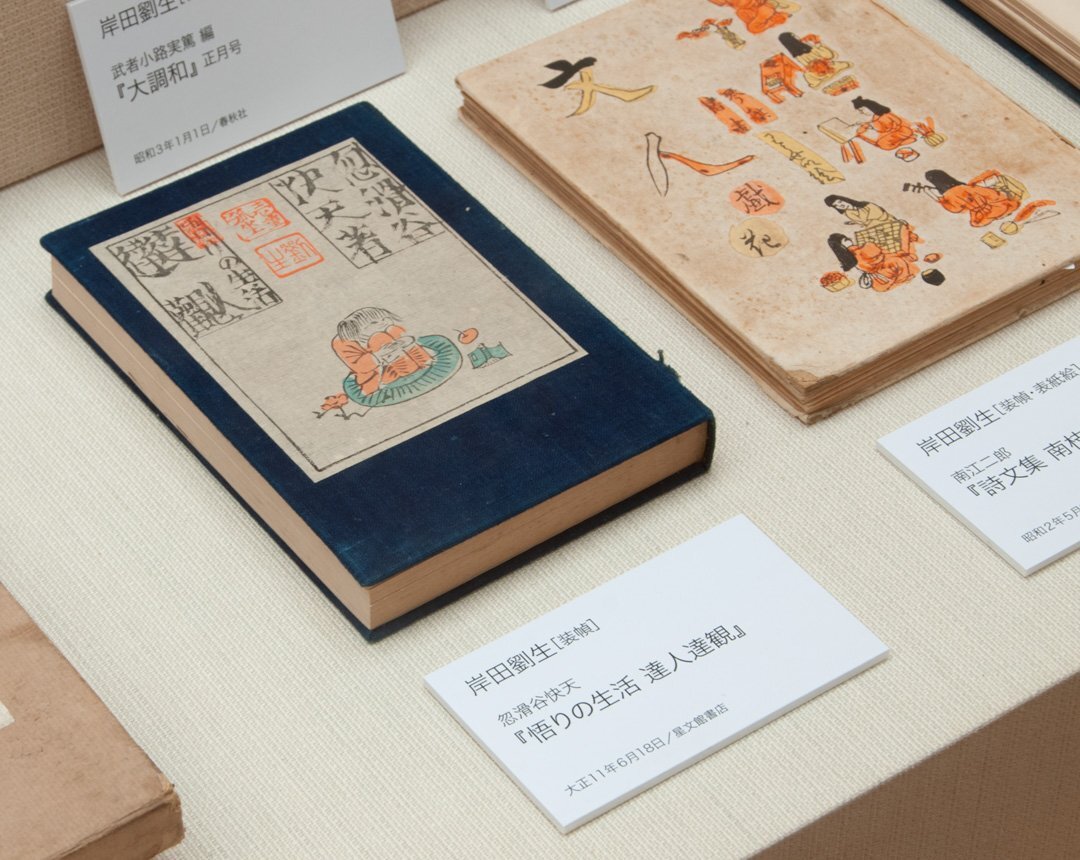 岸田劉生
武者小路実篤 編
『大調和』 正月号
昭和3年1月1日／春秋社
忽滑谷
快天著
悟りの生活
達人
達観
劉
生
文
人
戯
花
岸田劉生[装幀・表紙絵]
南江二郎
『詩文集 南枝
昭和2年5月
岸田劉生[装幀]
忽滑谷快天
『悟りの生活 達人達観』
大正11年6月18日／星文館書店